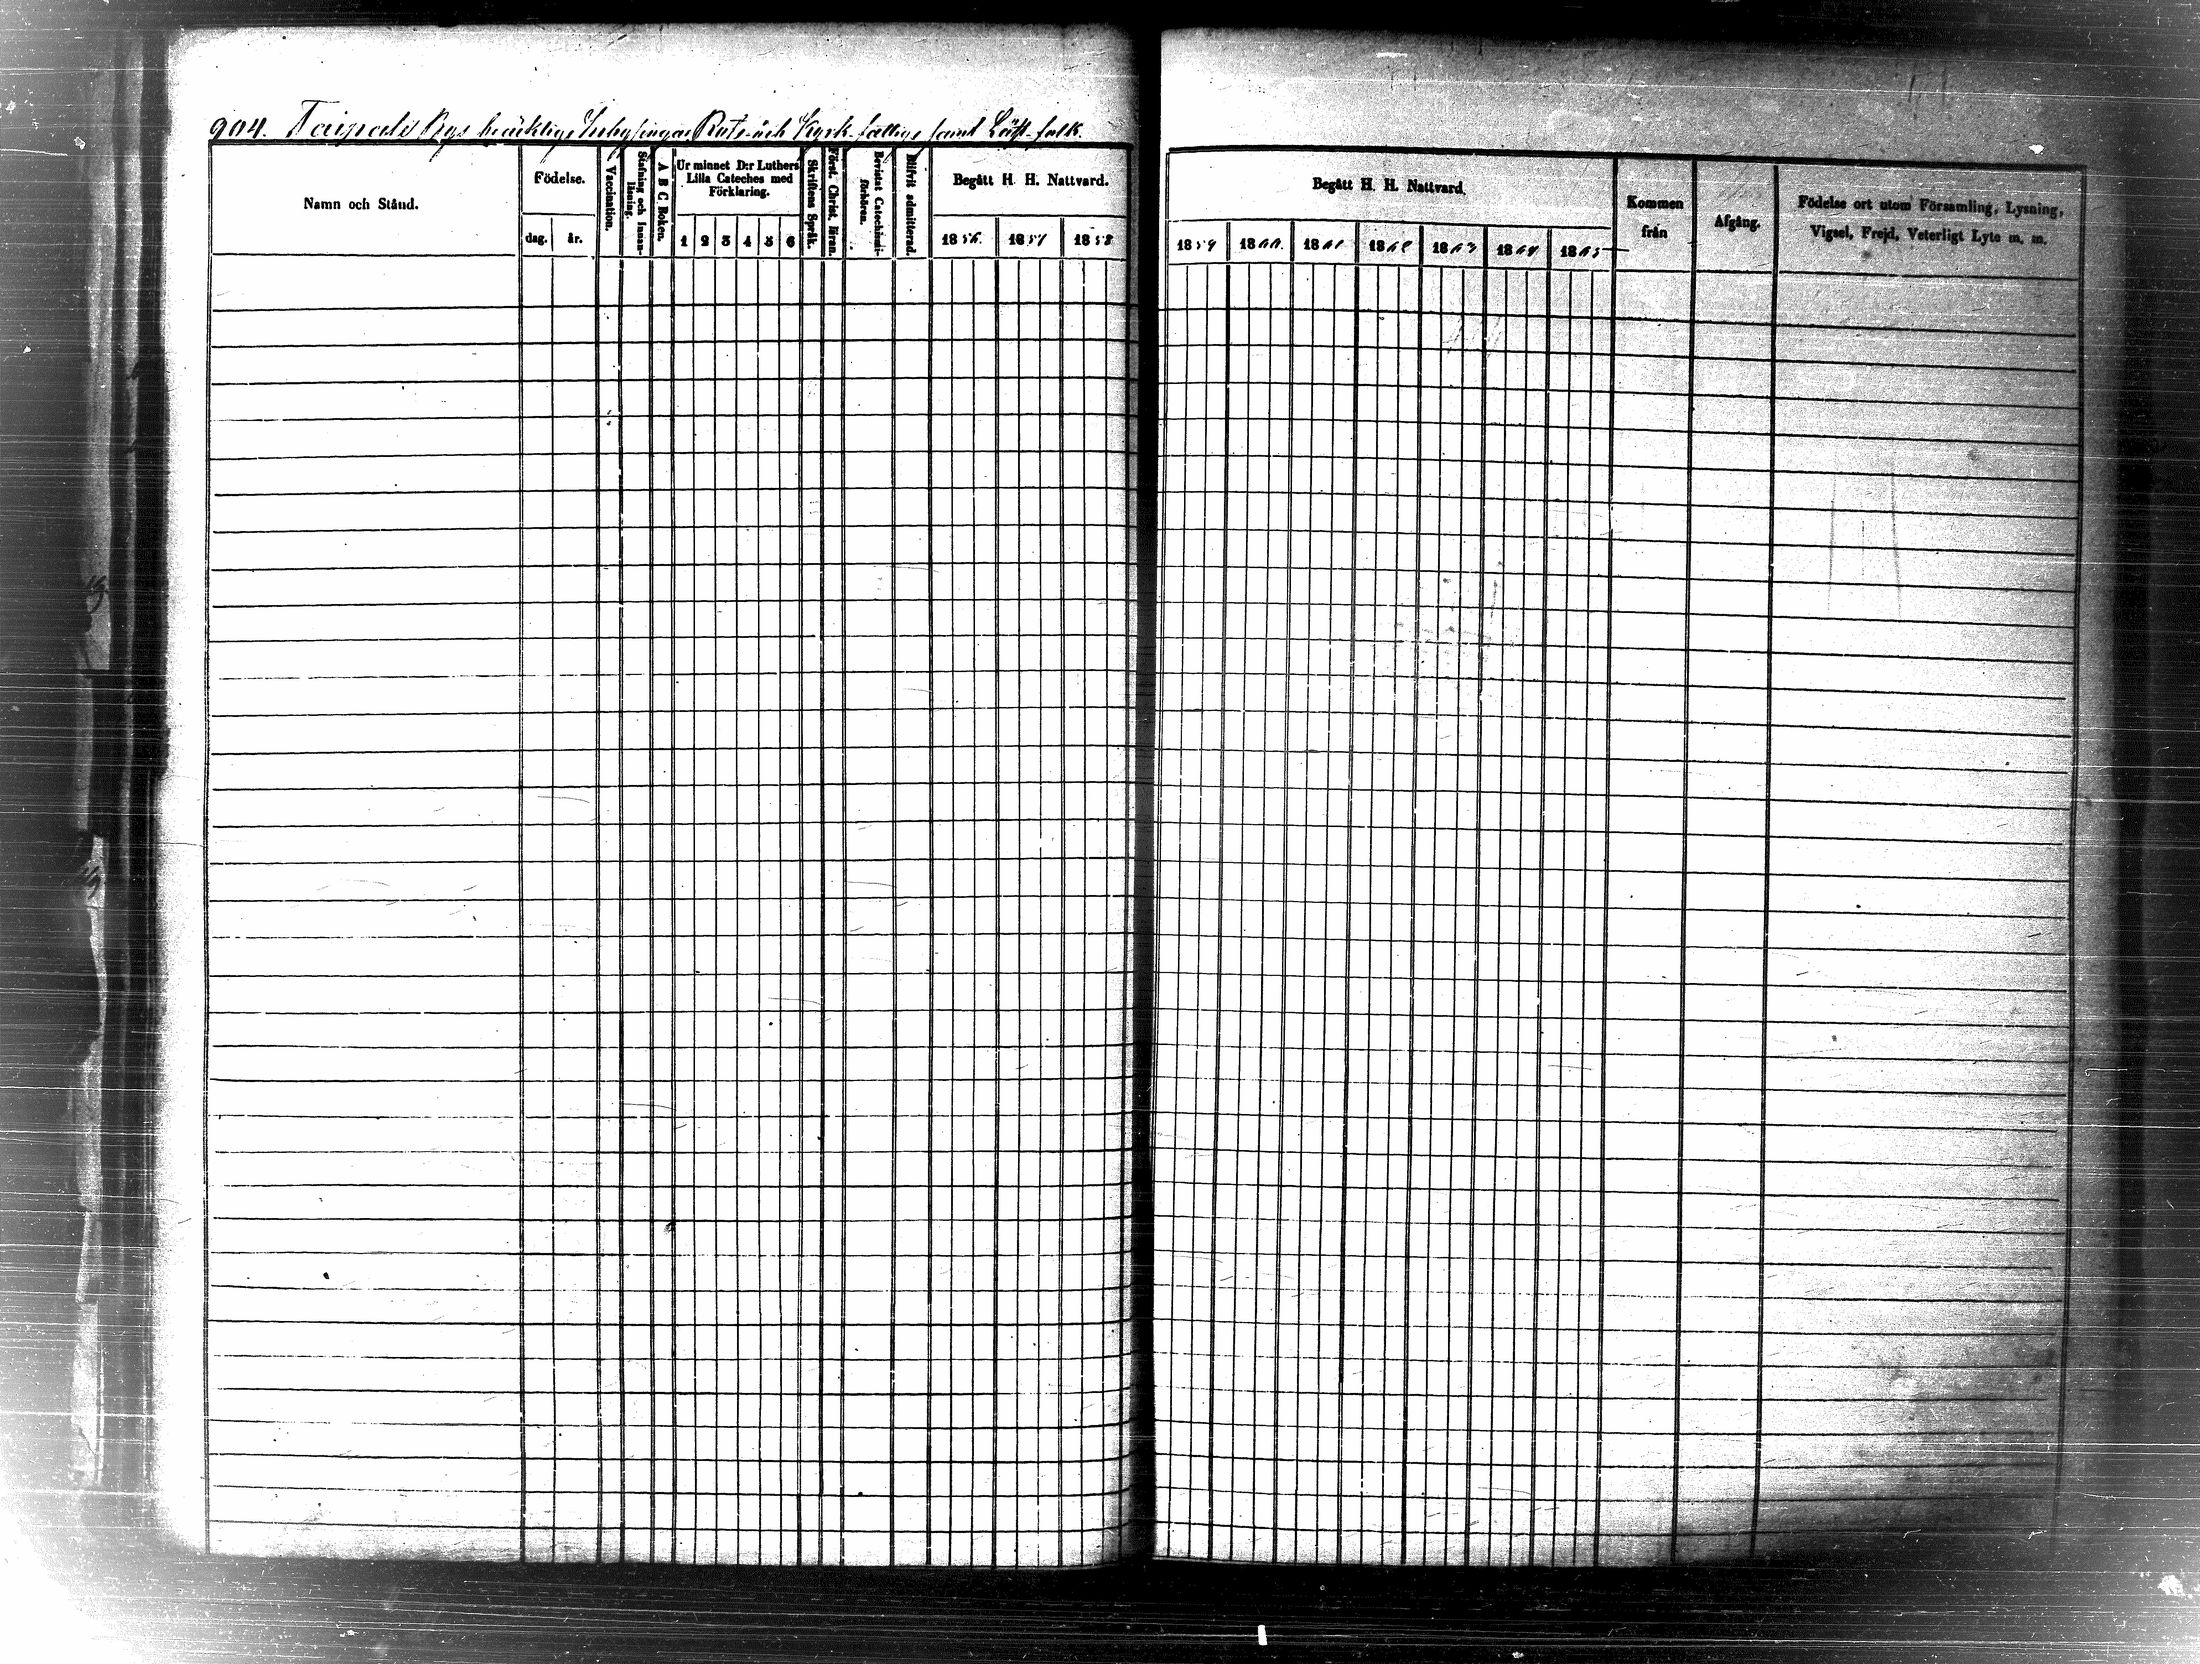 904. Taipale Bys bräcklige Inhysingar Rote och Kyrk-fattige samt Löst-folk.
Namn och Stånd.
Födelse.
dag. år.
Vaccination.
Stafning och innanläsning.
A B C Boken.
Ur minnet D:r Luthers
Lilla Cateches med
Förklaring.
1 2 3 4 5 6
Skriftens Språk.
Först. Christ. läran.
Bevistat Catechismi-
förhören.
Blifvit admitterad.
Begått H. H. Nattvard.
1856. 1857 1858
Begått H. H. Nattvard.
1859 1860. 1861 1862 1863 1864 1865
Kommen
från
Afgång.
Födelse ort utom Församling, Lysning,
Vigsel, Frejd, Veterligt Lyte m. m.